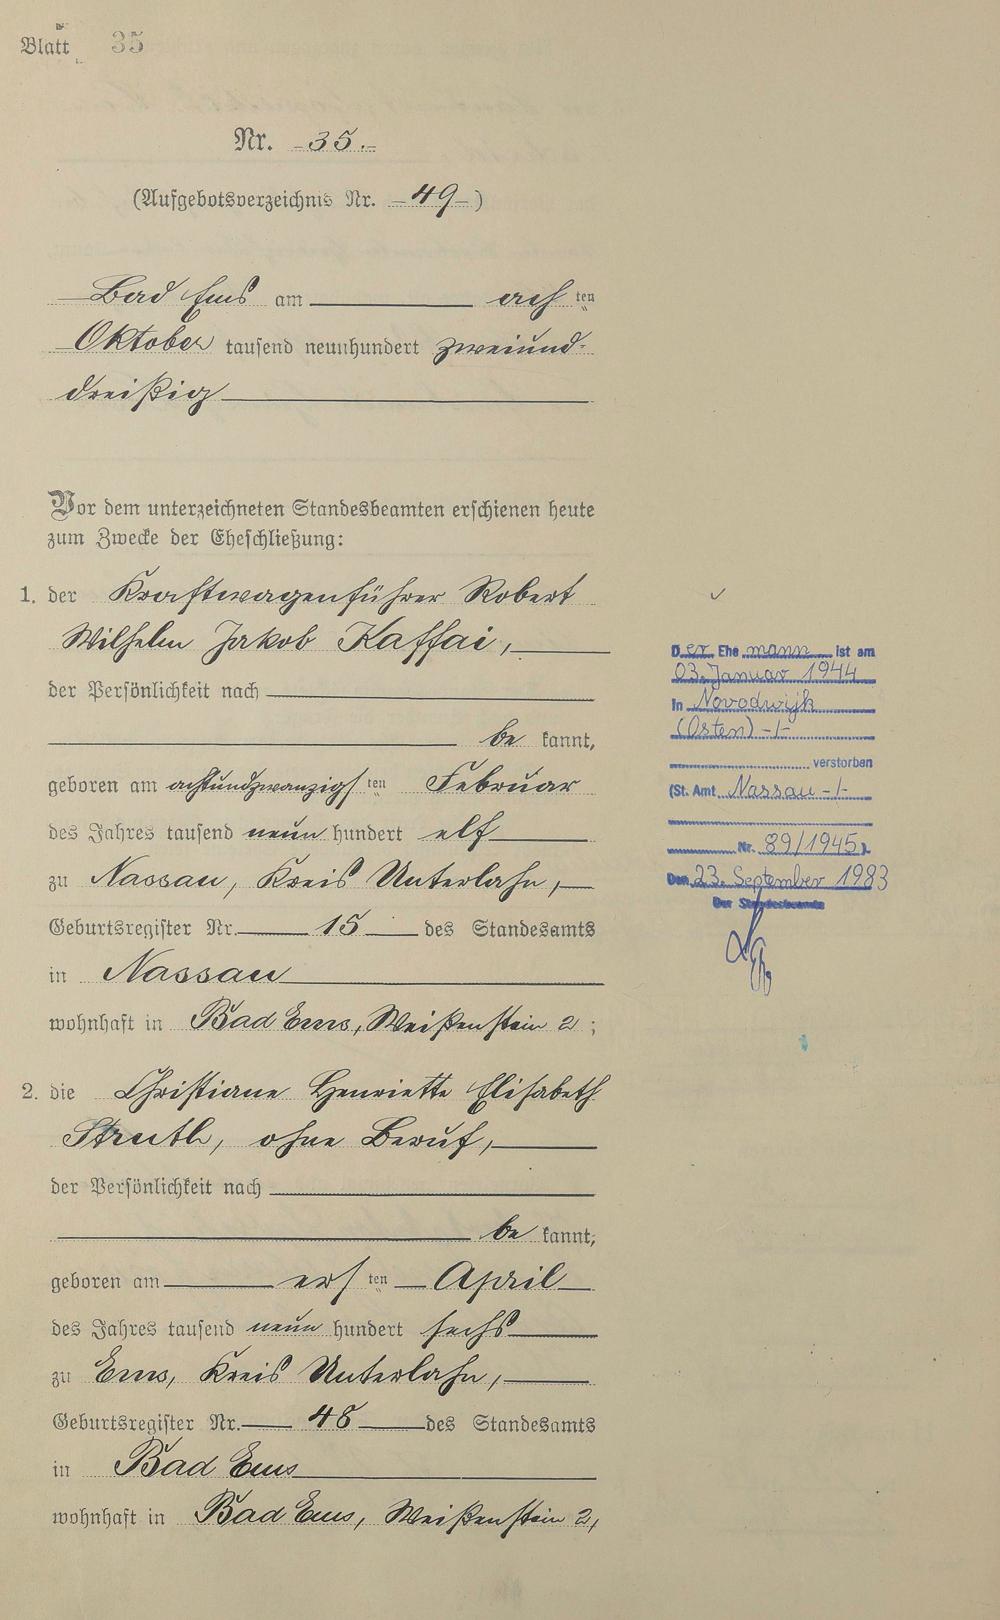 Blatt 35
Nr. -35.-
(Aufgebotsverzeichnis Nr. -49-)
Bad Ems am achten
Oktober tausend neunhundert zweiund-
dreißig
Vor dem unterzeichneten Standesbeamten erschienen heute
zum Zwecke der Eheschließung:
1. der Kraftwagenführer Robert
Wilhelm Jakob Kaffai,
der Persönlichkeit nach
be kannt,
geboren am achtundzwanzigsten Februar
des Jahres tausend neun hundert elf
zu Nassau, Kreis Unterlahn,
Geburtsregister Nr. 15 des Standesamts
in Nassau
wohnhaft in Bad Ems, Weißenstein 2;
2. die Christiane Henriette Elisabeth
Struth, ohne Beruf,
der Persönlichkeit nach
be kannt,
geboren am ersten April
des Jahres tausend neun hundert sechs
zu Ems, Kreis Unterlahn,
Geburtsregister Nr. 48 des Standesamts
in Bad Ems
wohnhaft in Bad Ems, Weißenstein 2,
Der Ehemann ist am
03. Januar 1944
in Novodwijk
(Osten) -/-
verstorben
(St. Amt Nassau -/-
Nr. 89/1945).
Den 23. September 1983
Der Standesbeamte